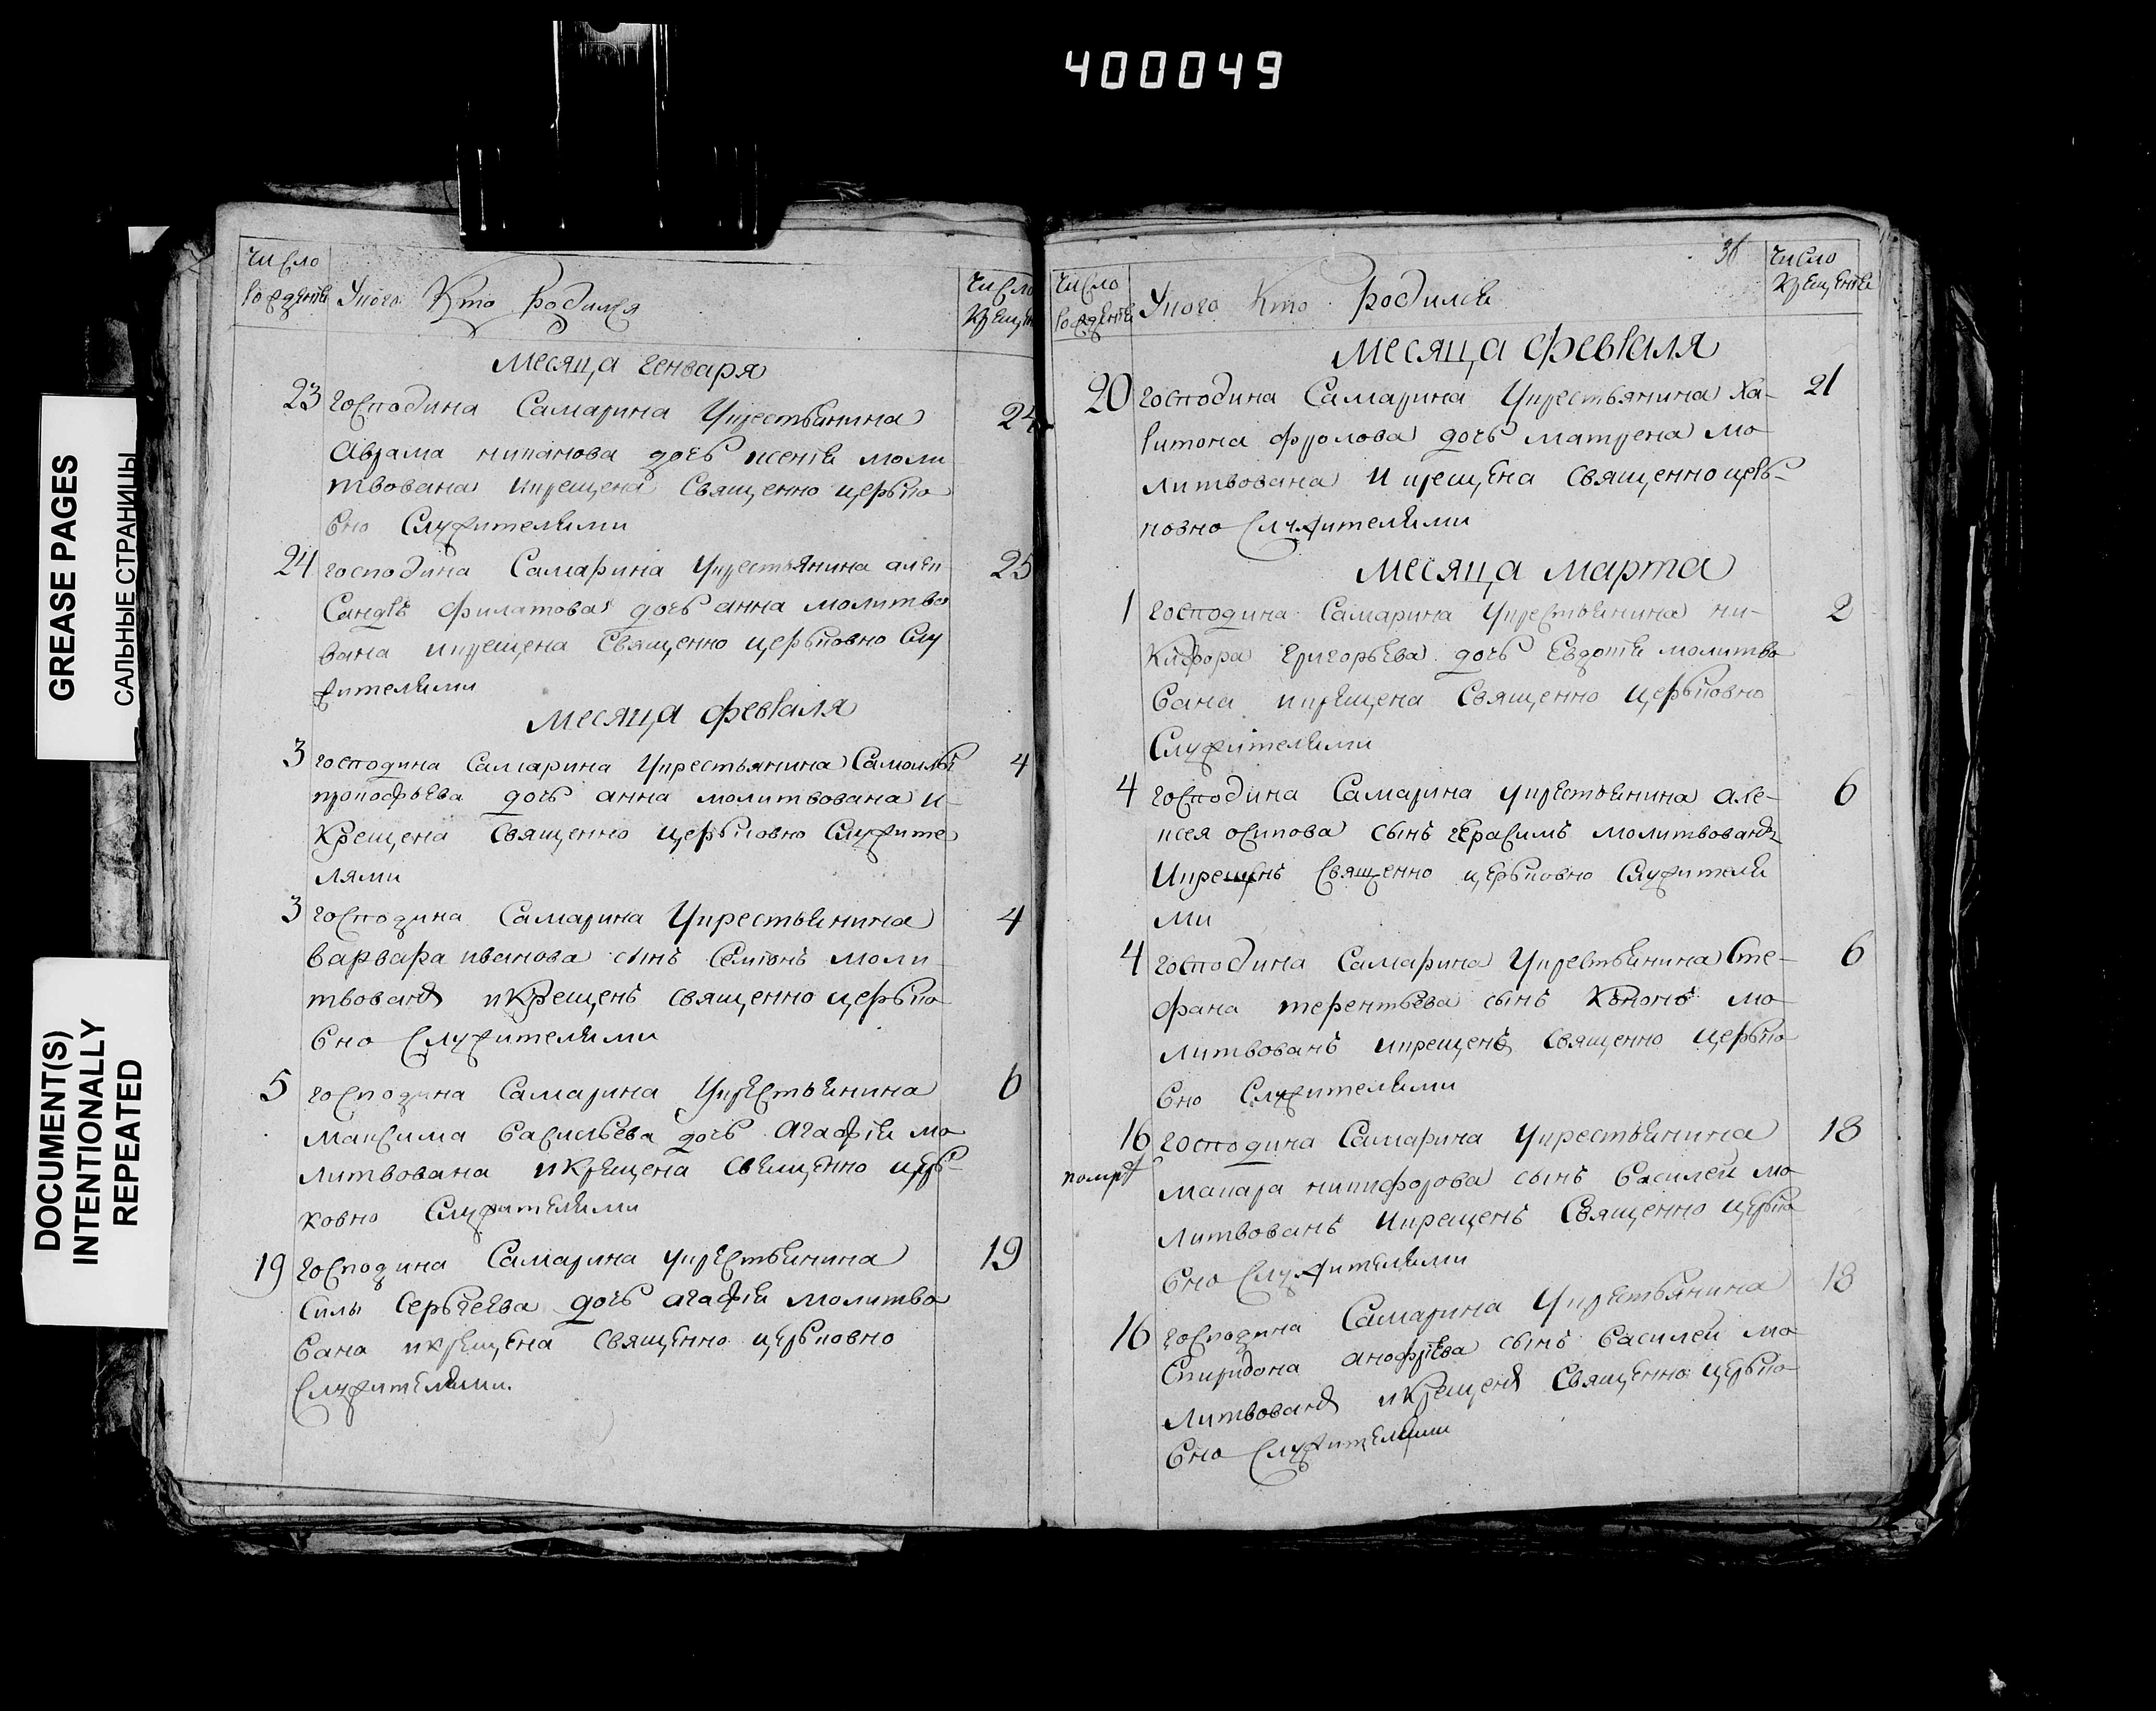 400049
GREASE PAGES
САЛЬНЫЕ СТРАНИЦЫ
DOCUMENT(S)
INTENTIONALLY
REPEATED
Число
рождения
У кого Кто родился
Число
крещен
Месяца генваря
23 господина Самарина у крестьянина 24
Аврама дочь ксения моли
твована и крещена священно церько
вно служителями
24 господина Самарина у крестьянина алек 25
сандръ филатова дочь анна молитво
вана и крещена священно церьковно слу
жителями
Месяца февраля
3 господина Самарина у крестьянина Самоилы 4
прокофьева дочь анна молитвована и
крещена священно церьковно служите
лями
3 господина Самарина у крестьянина 4
варвара иванова сынъ Семионъ моли
твованъ и крещенъ священно церько
вно служителями
5 господина Самарина у крестьянина 6
максима васильева дочь агафия мо
литвована и крещена священно церь
ковно служителями
19 господина Самарина у крестьянина 19
силы сергеева дочь агафия молитво
вана и крещена священно церьковно
служителями.
Число
рождения
У кого Кто родился
Число
крещения
Месяца февраля
20 господина Самарина у крестьянина ха- 21
ритона фролова дочь матрена мо
литвована и крещена священно церь-
ковно служителями
Месяца марта
1 господина Самарина у крестьянина ни- 2
кифора григорьева дочь Евдотия молитво
вана и крещена священно церьковно
служителями
4 господина Самарина у крестьянина але- 6
ксея осипова сынъ герасимъ молитвованъ
и крещенъ священно церьковно служителя
ми
4 господина Самарина у крестьянина Сте- 6
фана терентьева сынъ Кононъ мо
литвованъ и крещенъ священно церько
вно служителями
16 господина Самарина у крестьянина 18
помре
макара никифорова сынъ василей мо
литвованъ и крещенъ священно церько
вно служителями
16 господина Самарина у крестьянина 18
Спиридона анофриева сынъ василей мо
литвованъ и крещенъ священно церько
вно служителями